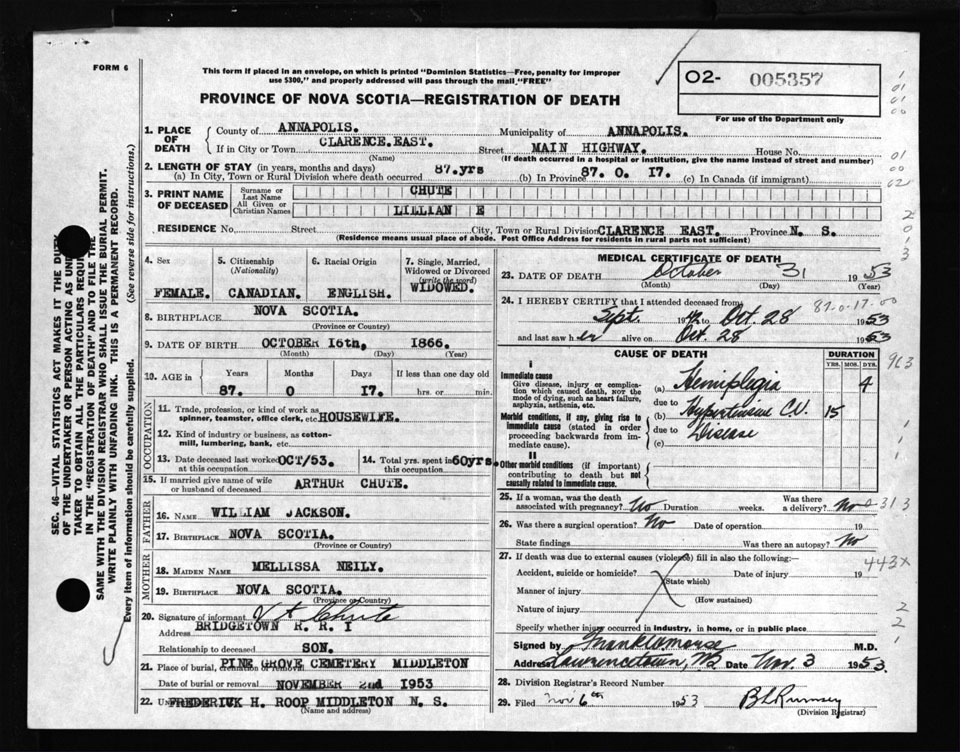 FORM 6
This form if placed in an envelope, on which is printed "Dominion Statistics—Free, penalty for improper
use $300," and properly addressed will pass through the mail "FREE"
O2- 005357
For use of the Department only
PROVINCE OF NOVA SCOTIA—REGISTRATION OF DEATH
SEC. 46—VITAL STATISTICS ACT MAKES IT THE DUTY
OF THE UNDERTAKER OR PERSON ACTING AS UNDER
TAKER TO OBTAIN ALL THE PARTICULARS REQUIR
IN THE "REGISTRATION OF DEATH" AND TO FILE THE
SAME WITH THE DIVISION REGISTRAR WHO SHALL ISSUE THE BURIAL PERMIT.
WRITE PLAINLY WITH UNFADING INK. THIS IS A PERMANENT RECORD.
Every item of information should be carefully supplied. (See reverse side for instructions.)
1. PLACE OF DEATH
County of ANNAPOLIS. Municipality of ANNAPOLIS.
If in City or Town CLARENCE.EAST. Street MAIN HIGHWAY. House No.
(Name) (If death occurred in a hospital or institution, give the name instead of street and number)
2. LENGTH OF STAY (in years, months and days)
(a) In City, Town or Rural Division where death occurred 87.yrs (b) In Province 87. 0. I7. (c) In Canada (if immigrant)
3. PRINT NAME OF DECEASED
Surname or Last Name CHUTE
All Given or Christian Names LILLIAN E
RESIDENCE No. Street City, Town or Rural Division CLARENCE EAST. Province N. S.
(Residence means usual place of abode. Post Office Address for residents in rural parts not sufficient)
4. Sex FEMALE.
5. Citizenship (Nationality) CANADIAN.
6. Racial Origin ENGLISH.
7. Single, Married, Widowed or Divorced (write the word) WIDOWED.
8. BIRTHPLACE NOVA SCOTIA.
(Province or Country)
9. DATE OF BIRTH OCTOBER I6th, 1866.
(Month) (Day) (Year)
10. AGE in Years Months Days If less than one day old
87. 0 I7. hrs. or min.
OCCUPATION
11. Trade, profession, or kind of work as
spinner, teamster, office clerk, etc. HOUSEWIFE.
12. Kind of industry or business, as cotton-
mill, lumbering, bank, etc.
13. Date deceased last worked at this occupation OCT/53.
14. Total yrs. spent in this occupation 60yrs.
15. If married give name of wife
or husband of deceased ARTHUR CHUTE.
FATHER
16. NAME WILLIAM JACKSON.
17. BIRTHPLACE NOVA SCOTIA.
(Province or Country)
MOTHER
18. MAIDEN NAME MELLISSA NEILY.
19. BIRTHPLACE NOVA SCOTIA.
(Province or Country)
20. Signature of informant Chute
Address BRIDGETOWN R. R. I
Relationship to deceased SON.
21. Place of burial, cremation or removal PINE GROVE CEMETERY MIDDLETON
Date of burial or removal NOVEMBER 2nd I953
22. FREDERICK H. ROOP MIDDLETON N. S.
(Name and address)
MEDICAL CERTIFICATE OF DEATH
23. DATE OF DEATH October 31 1953
(Month) (Day) (Year)
24. I HEREBY CERTIFY that I attended deceased from
87-0-17-00
Sept. 1942 to Oct. 28 1953
and last saw her alive on Oct. 28 1953
CAUSE OF DEATH DURATION
YRS. MOS. DYS.
I
Immediate cause
Give disease, injury or complica-
tion which caused death, not the
mode of dying, such as heart failure,
asphyxia, asthenia, etc.
(a) Hemiplegia 4
due to
Morbid conditions, if any, giving rise to
immediate cause (stated in order
proceeding backwards from im-
mediate cause).
(b) Hypertensive C.V. 15
due to Disease
(c)
II
Other morbid conditions (if important)
contributing to death but not
causally related to immediate cause.
25. If a woman, was the death associated with pregnancy? No Duration weeks. Was there a delivery? No
26. Was there a surgical operation? No Date of operation 19
State findings Was there an autopsy? No
27. If death was due to external causes (violence) fill in also the following:—
Accident, suicide or homicide? Date of injury 19
(State which)
Manner of injury
(How sustained)
Nature of injury
Specify whether injury occurred in industry, in home, or in public place
Signed by Frank Morse M.D.
Address Lawrencetown, NS Date Nov. 3 1953.
28. Division Registrar's Record Number
29. Filed Nov 6th 1953
(Division Registrar)
963
443X